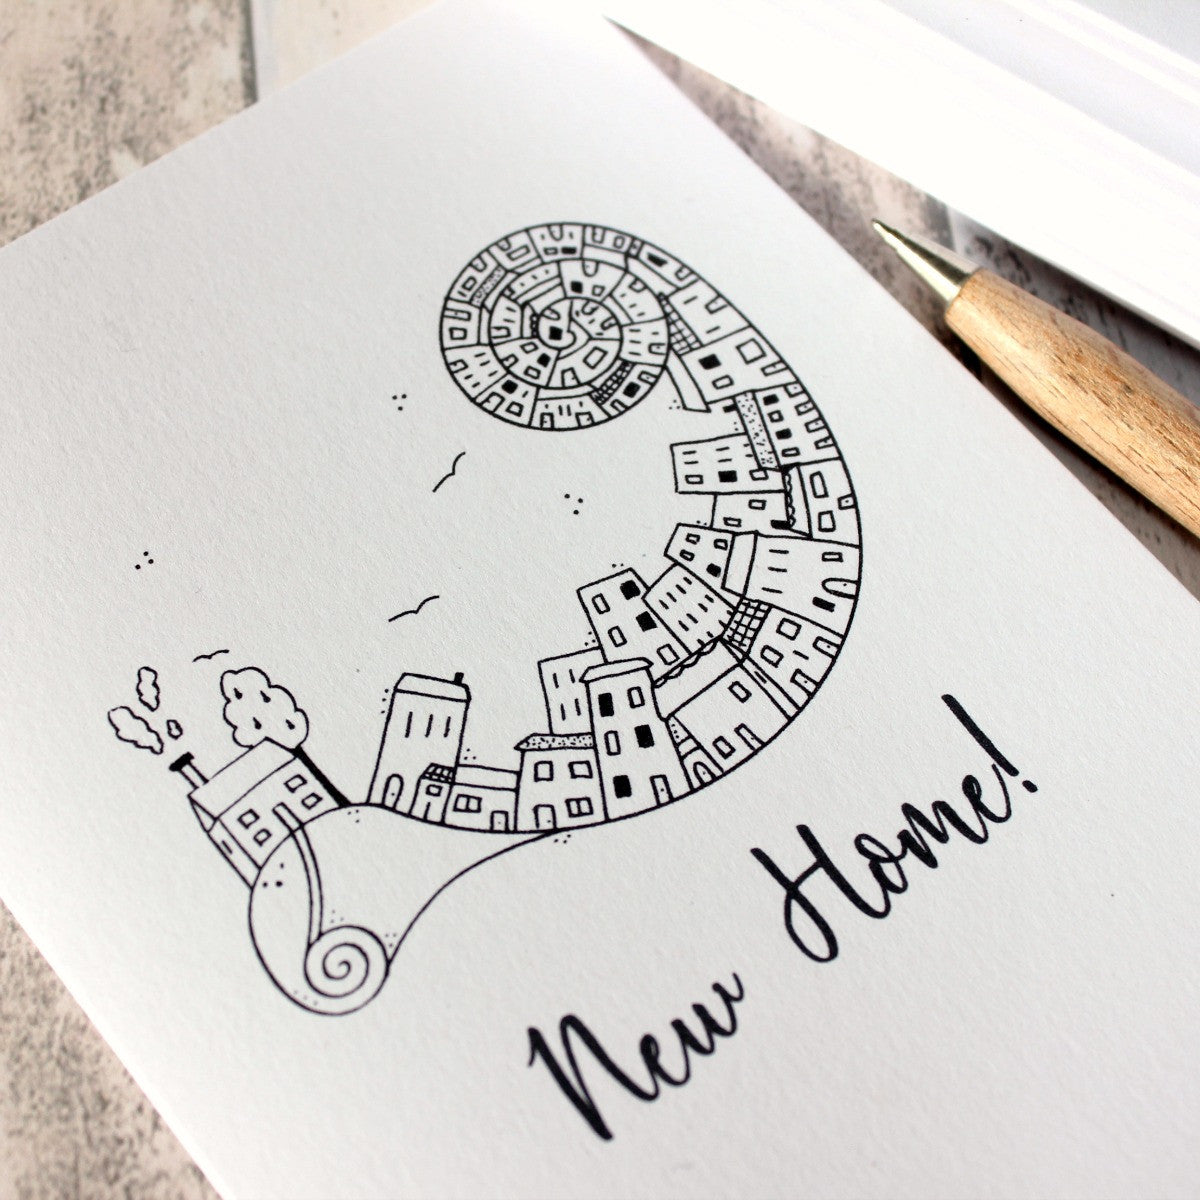 New Home!